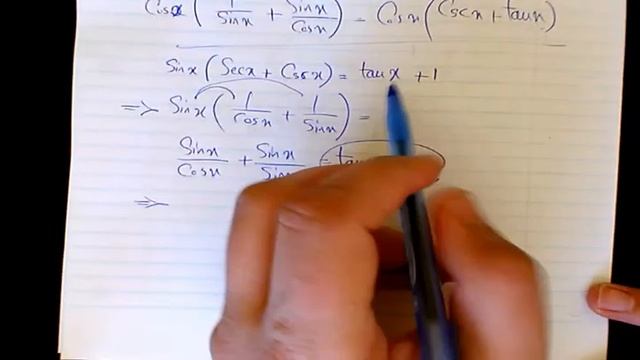 Cosx ( 1/Sinx + Sinx/Cosx ) = Cosx ( Cscx + tanx )
Sinx ( Secx + Cscx ) = tanx + 1
=> Sinx ( 1/Cosx + 1/Sinx ) =
Sinx/Cosx + Sinx/Sinx =
=>